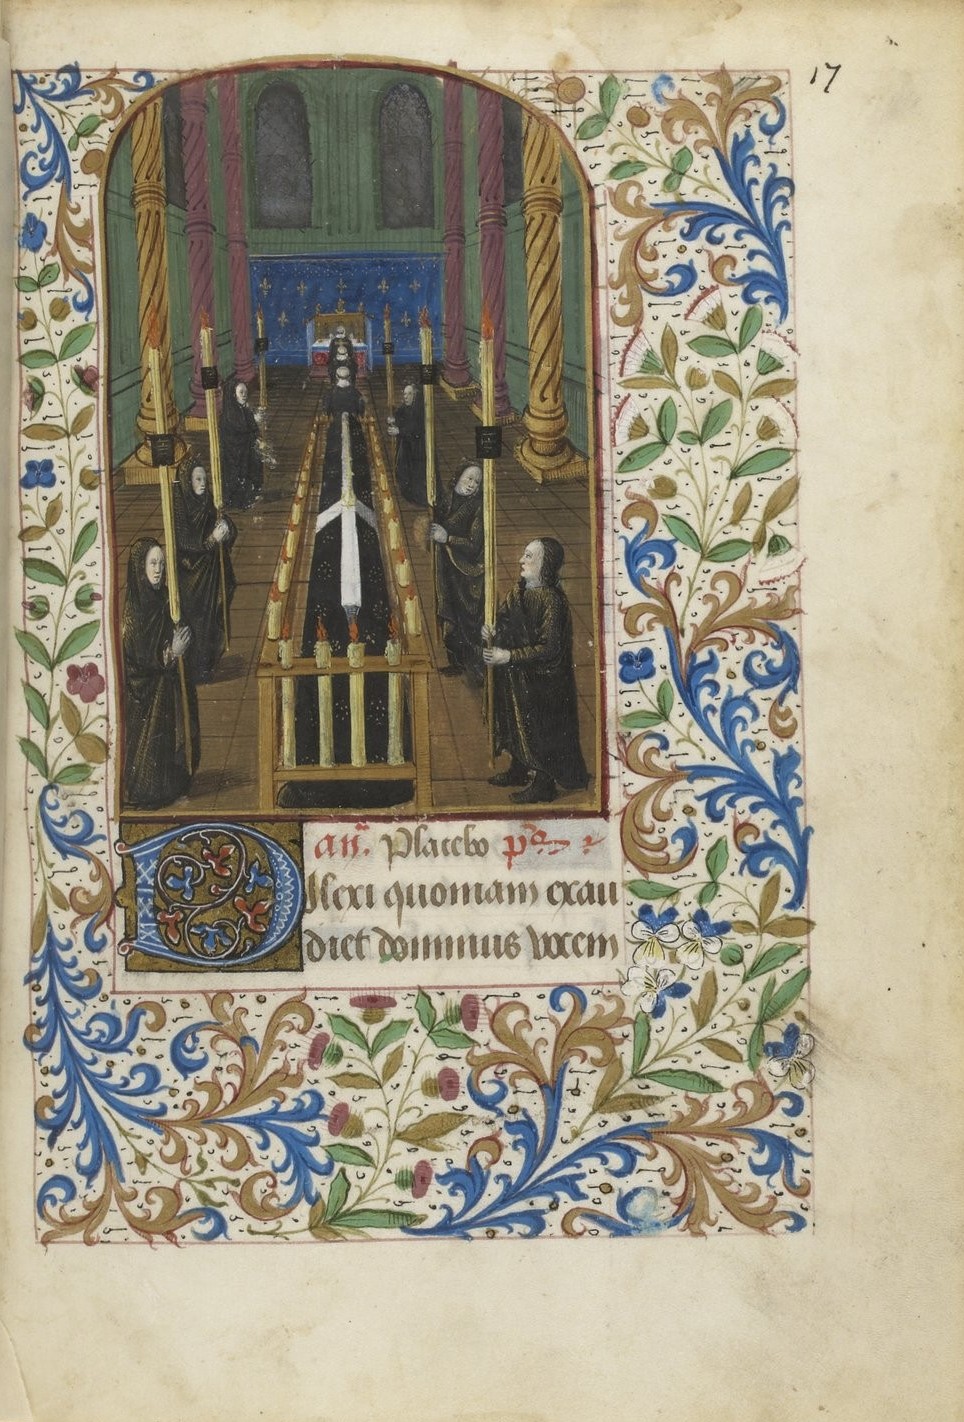 17
an̄. Placebo ps̄.
Dilexi quoniam exau
diet dominus vocem